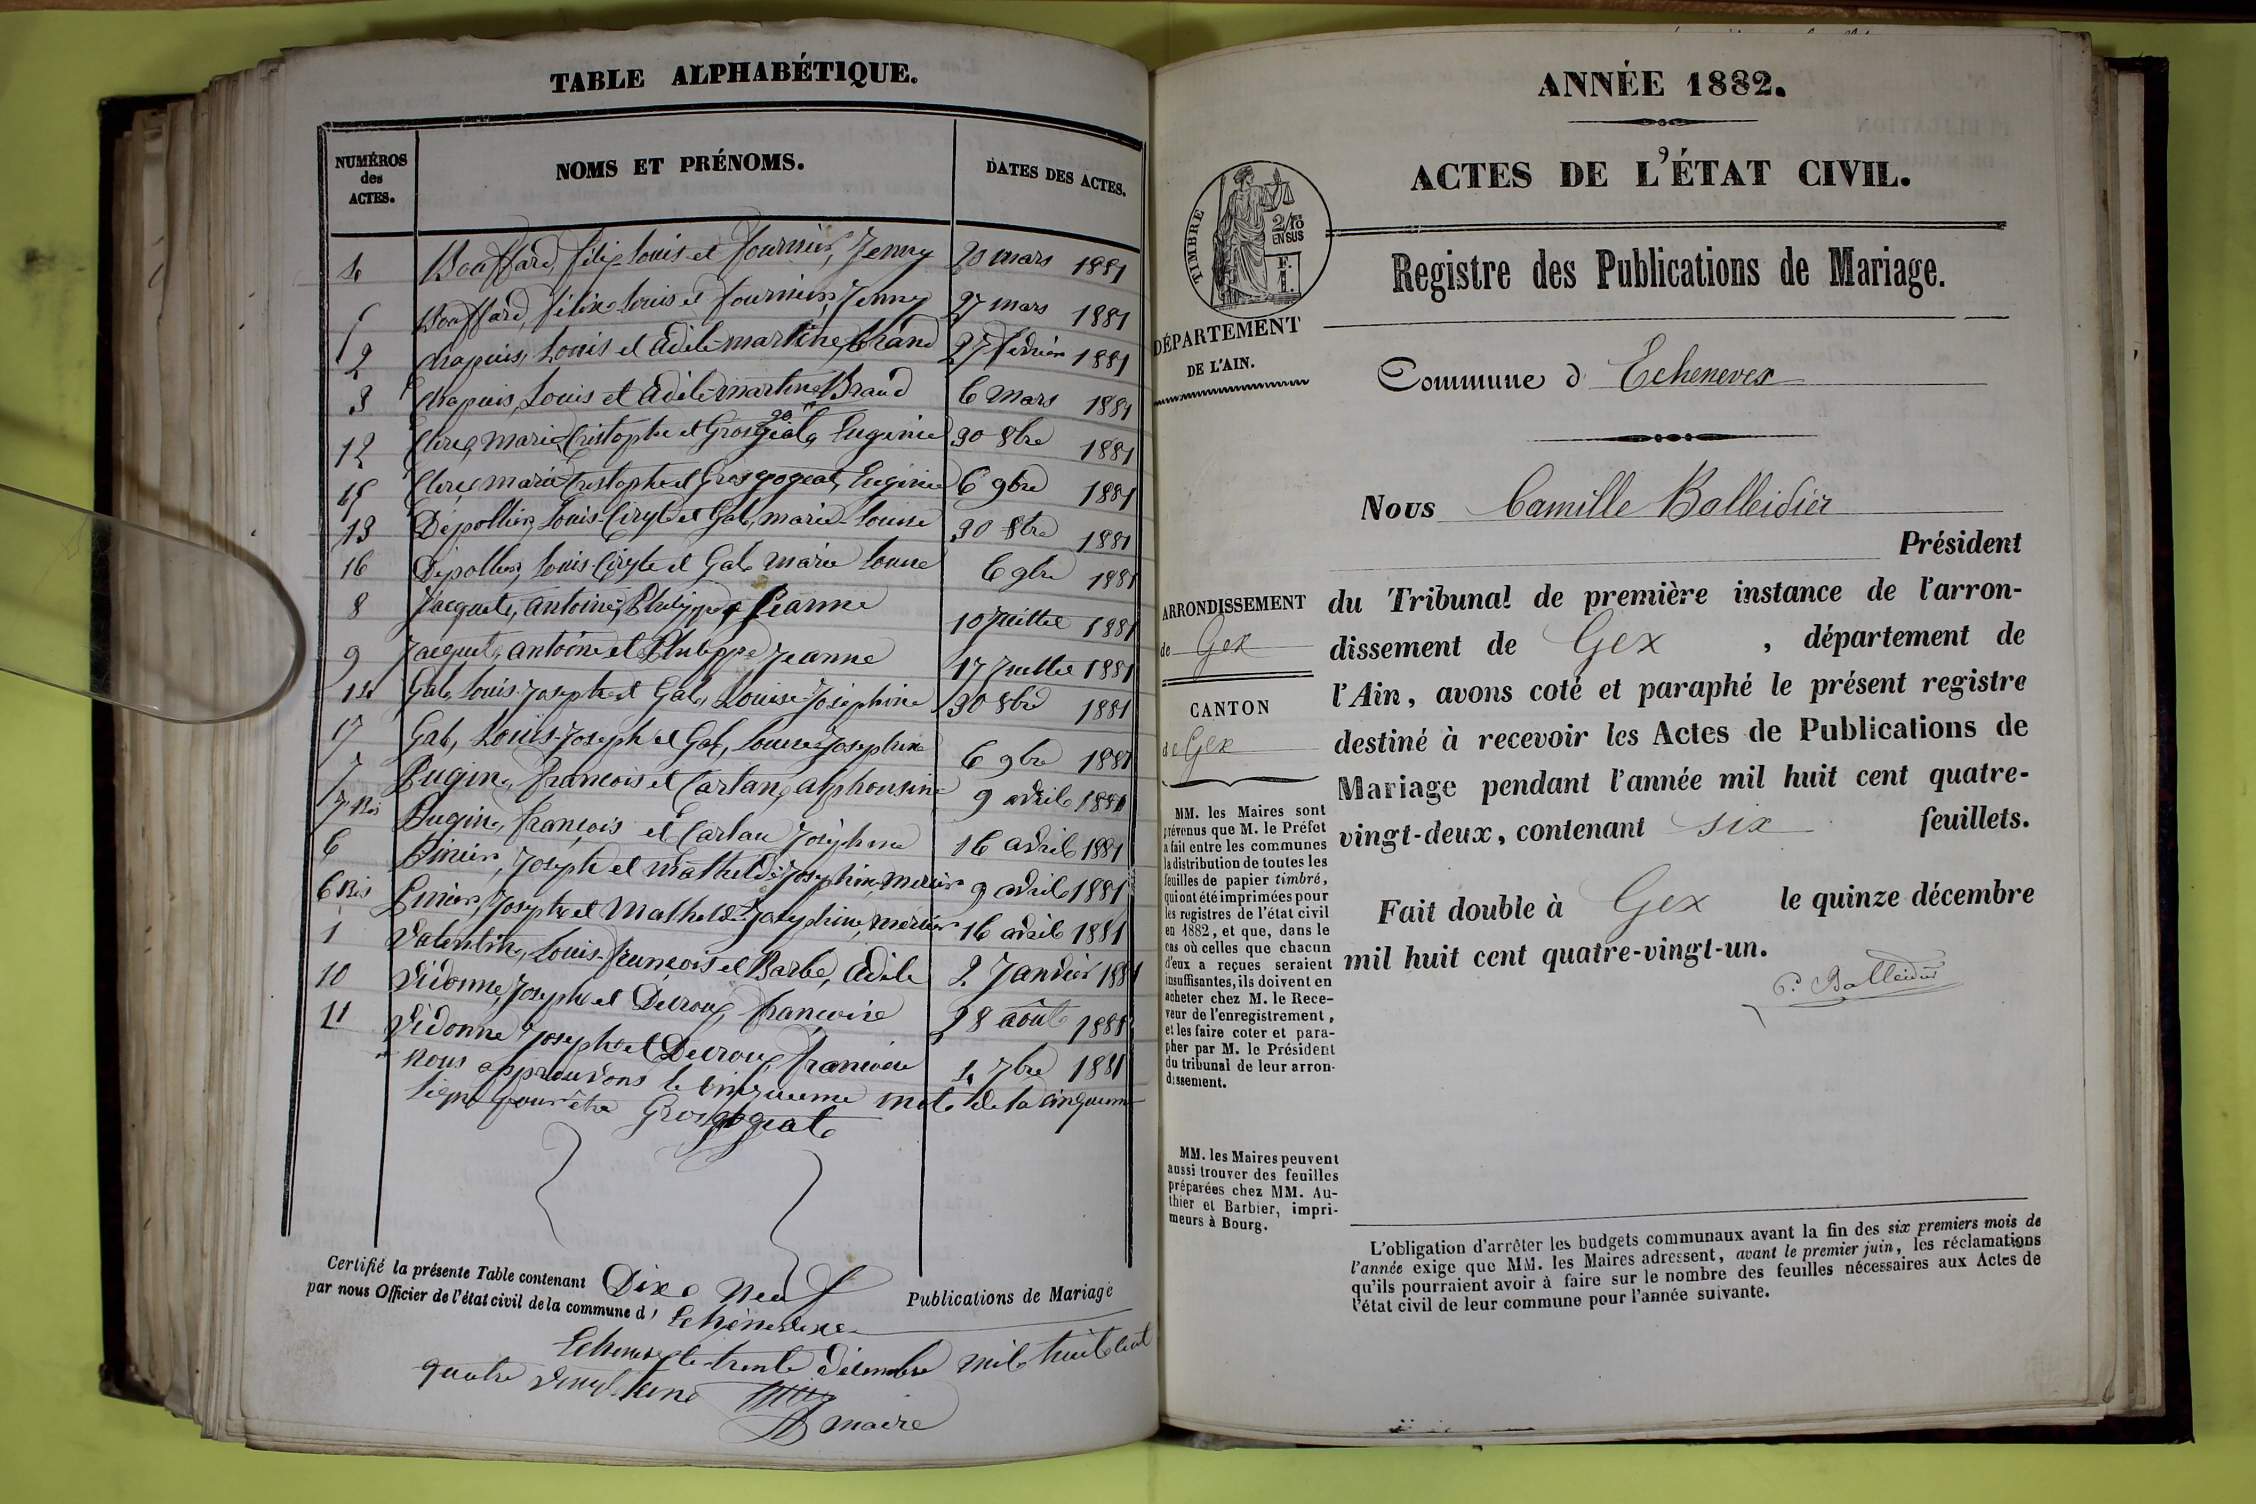 TABLE ALPHABÉTIQUE.
NUMÉROS
des
ACTES.
NOMS ET PRÉNOMS.
DATES DES ACTES.
4 Bouffard, félix Louis et fournier, Jenny 20 mars 1881
5 Bouffard, félix Louis et fournier, Jenny 27 mars 1881
2 Chapuis, Louis et Adèle-martine Braud 27 fevrier 1881
3 Chapuis, Louis et Adèle-martine Braud 6 mars 1881
12 Clerc, marie Cristophe et Grosgogeat, Eugenie 30 8bre 1881
15 Clerc, marie Cristophe et Grosgogeat, Eugenie 6 9bre 1881
13 Dépollier, Louis-Ciryle et Gab, marie-Louise 30 8bre 1881
16 Dépollier, Louis-Ciryle et Gab, marie Louise 6 9bre 1881
8 Jacquet, antoine, Philippe, Jeanne 10 Juillet 1881
9 Jacquet, antoine et Philippe Jeanne 17 Juillet 1881
14 Gab, Louis-Joseph et Gab, Louise-Joséphine 30 8bre 1881
17 Gab, Louis-Joseph et Gab, Louise-Josephine 6 9bre 1881
7 Pugin, francois et Cartan, alphonsine 9 avril 1881
7 Bis Pugin, françois et Cartan Joséphine 16 avril 1881
6 Pinier, Joseph et Mathelde-Josephine, mercier 9 avril 1881
6 Bis Pinier, Joseph et Mathelde Josephine, mercier 16 avril 1881
1 Valentin, Louis-françois et Barbe, Adèle 2 Janvier 1881
10 Vidonne, Joseph et Decroux, francoise 28 août 1881
11 Vidonne Joseph et Decroux, francoise 4 7bre 1881
nous approuvons le cinquieme mot de la cinquieme
ligne pour être Grosgogeat
Certifié la présente Table contenant Dix neuf Publications de Mariage
par nous Officier de l'état civil de la commune d' Echenevex
Echenevex le trente décembre mil huit cent
quatre vingt une
maire
ANNÉE 1882.
ACTES DE L'ÉTAT CIVIL.
TIMBRE
2/10
EN SUS
F.
1.
Registre des Publications de Mariage.
DÉPARTEMENT
DE L'AIN.
Commune d' Echenevex
Nous Camille Balleidier
Président
du Tribunal de première instance de l'arron-
dissement de Gex , département de
l'Ain, avons coté et paraphé le présent registre
destiné à recevoir les Actes de Publications de
Mariage pendant l'année mil huit cent quatre-
vingt-deux, contenant six feuillets.
Fait double à Gex le quinze décembre
mil huit cent quatre-vingt-un.
C. Balleidier
ARRONDISSEMENT
de Gex
CANTON
de Gex
MM. les Maires sont
prévenus que M. le Préfet
a fait entre les communes
la distribution de toutes les
feuilles de papier timbré,
qui ont été imprimées pour
les registres de l'état civil
en 1882, et que, dans le
cas où celles que chacun
d'eux a reçues seraient
insuffisantes, ils doivent en
acheter chez M. le Rece-
veur de l'enregistrement,
et les faire coter et para-
pher par M. le Président
du tribunal de leur arron-
dissement.
MM. les Maires peuvent
aussi trouver des feuilles
préparées chez MM. Au-
thier et Barbier, impri-
meurs à Bourg.
L'obligation d'arrêter les budgets communaux avant la fin des six premiers mois de
l'année exige que MM. les Maires adressent, avant le premier juin, les réclamations
qu'ils pourraient avoir à faire sur le nombre des feuilles nécessaires aux Actes de
l'état civil de leur commune pour l'année suivante.